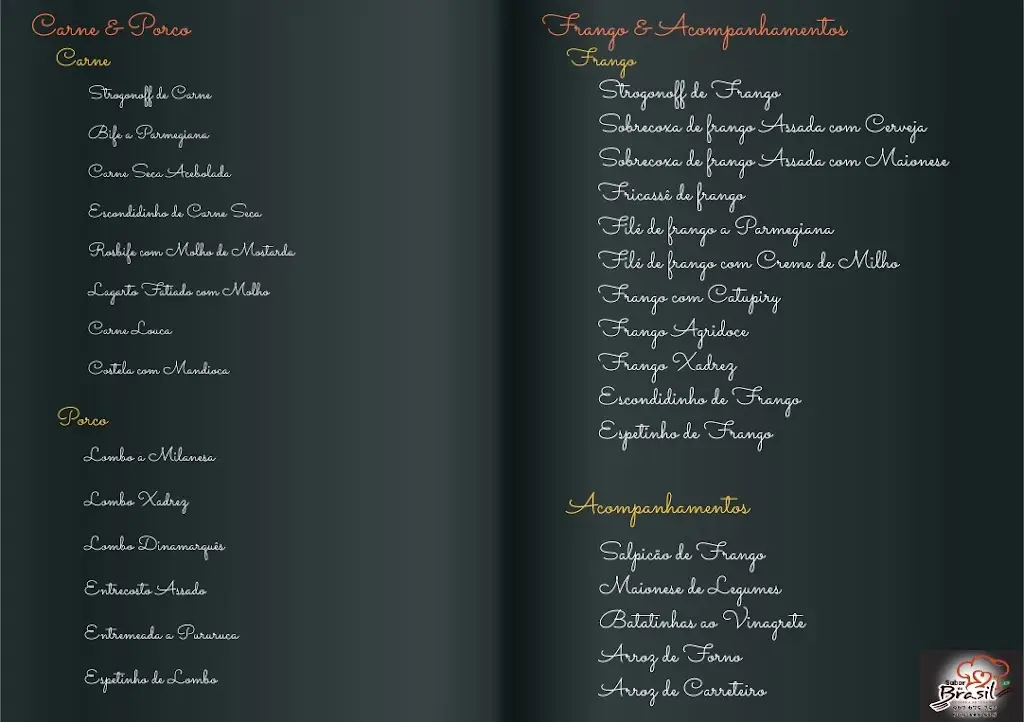 Carne & Porco
Carne
Strogonoff de Carne
Bife a Parmegiana
Carne Seca Acebolada
Escondidinho de Carne Seca
Rosbife com Molho de Mostarda
Lagarto Fatiado com Molho
Carne Louca
Costela com Mandioca
Porco
Lombo a Milanesa
Lombo Xadrez
Lombo Dinamarquês
Entrecosto Assado
Entremeada a Pururuca
Espetinho de Lombo
Frango & Acompanhamentos
Frango
Strogonoff de Frango
Sobrecoxa de frango Assada com Cerveja
Sobrecoxa de frango Assada com Maionese
Fricassê de frango
Filé de frango a Parmegiana
Filé de frango com Creme de Milho
Frango com Catupiry
Frango Agridoce
Frango Xadrez
Escondidinho de Frango
Espetinho de Frango
Acompanhamentos
Salpicão de Frango
Maionese de Legumes
Batatinhas ao Vinagrete
Arroz de Forno
Arroz de Carreteiro
Sabor
do
Brasil